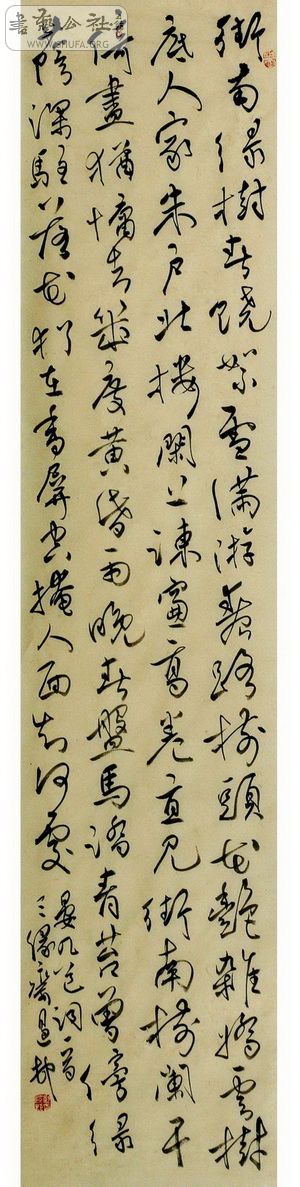 書藝公社
WWW.SHUFA.ORG
街南綠樹春饒絮雪滿游春路樹頭花艷雜嬌雲樹
底人家朱戶北樓閑上疎窗高卷直見街南樹闌干
倚盡猶慵去幾度黃昏雨晚春盤馬踏青苔曾傍綠
陰深駐落花猶在香屏空掩人面知何處
晏几道詞一首